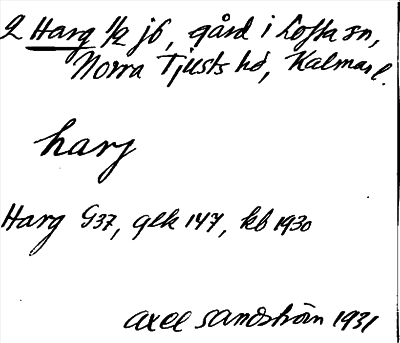 2 Harg 1/2 j6, gård i Lofta sn,
Norra Tjusts hd, Kalmar l.
harj
Harg G37, gek 147, kb 1930
Axel Sandström 1931